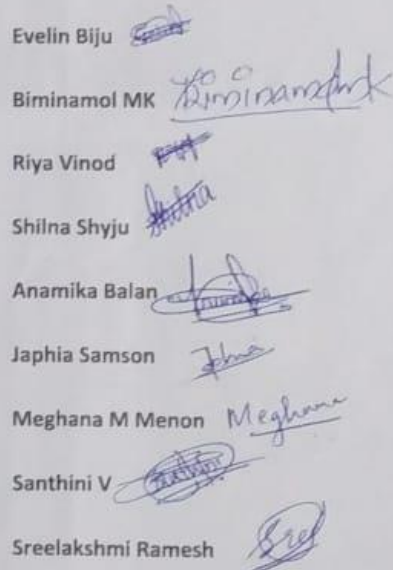 Evelin Biju
Biminamol MK Biminamolmk
Riya Vinod
Shilna Shyju Shilna
Anamika Balan
Japhia Samson
Meghana M Menon Meghana
Santhini V
Sreelakshmi Ramesh Sree